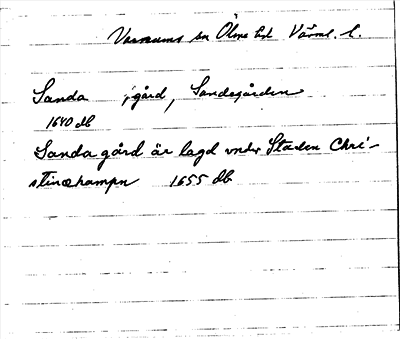 Varnums sn Ölme hd Värml. l.
Sanda , gård, Sandegården
1640 db
Sanda gård är lagd vnder Staden Chri-
stinæhampn 1655 db